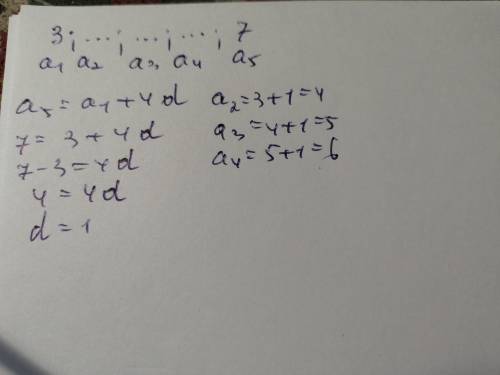 3; ....; ....; ....; 7
a1 a2 a3 a4 a5
a5 = a1 + 4d
7 = 3 + 4d
7 - 3 = 4d
4 = 4d
d = 1
a2 = 3 + 1 = 4
a3 = 4 + 1 = 5
a4 = 5 + 1 = 6